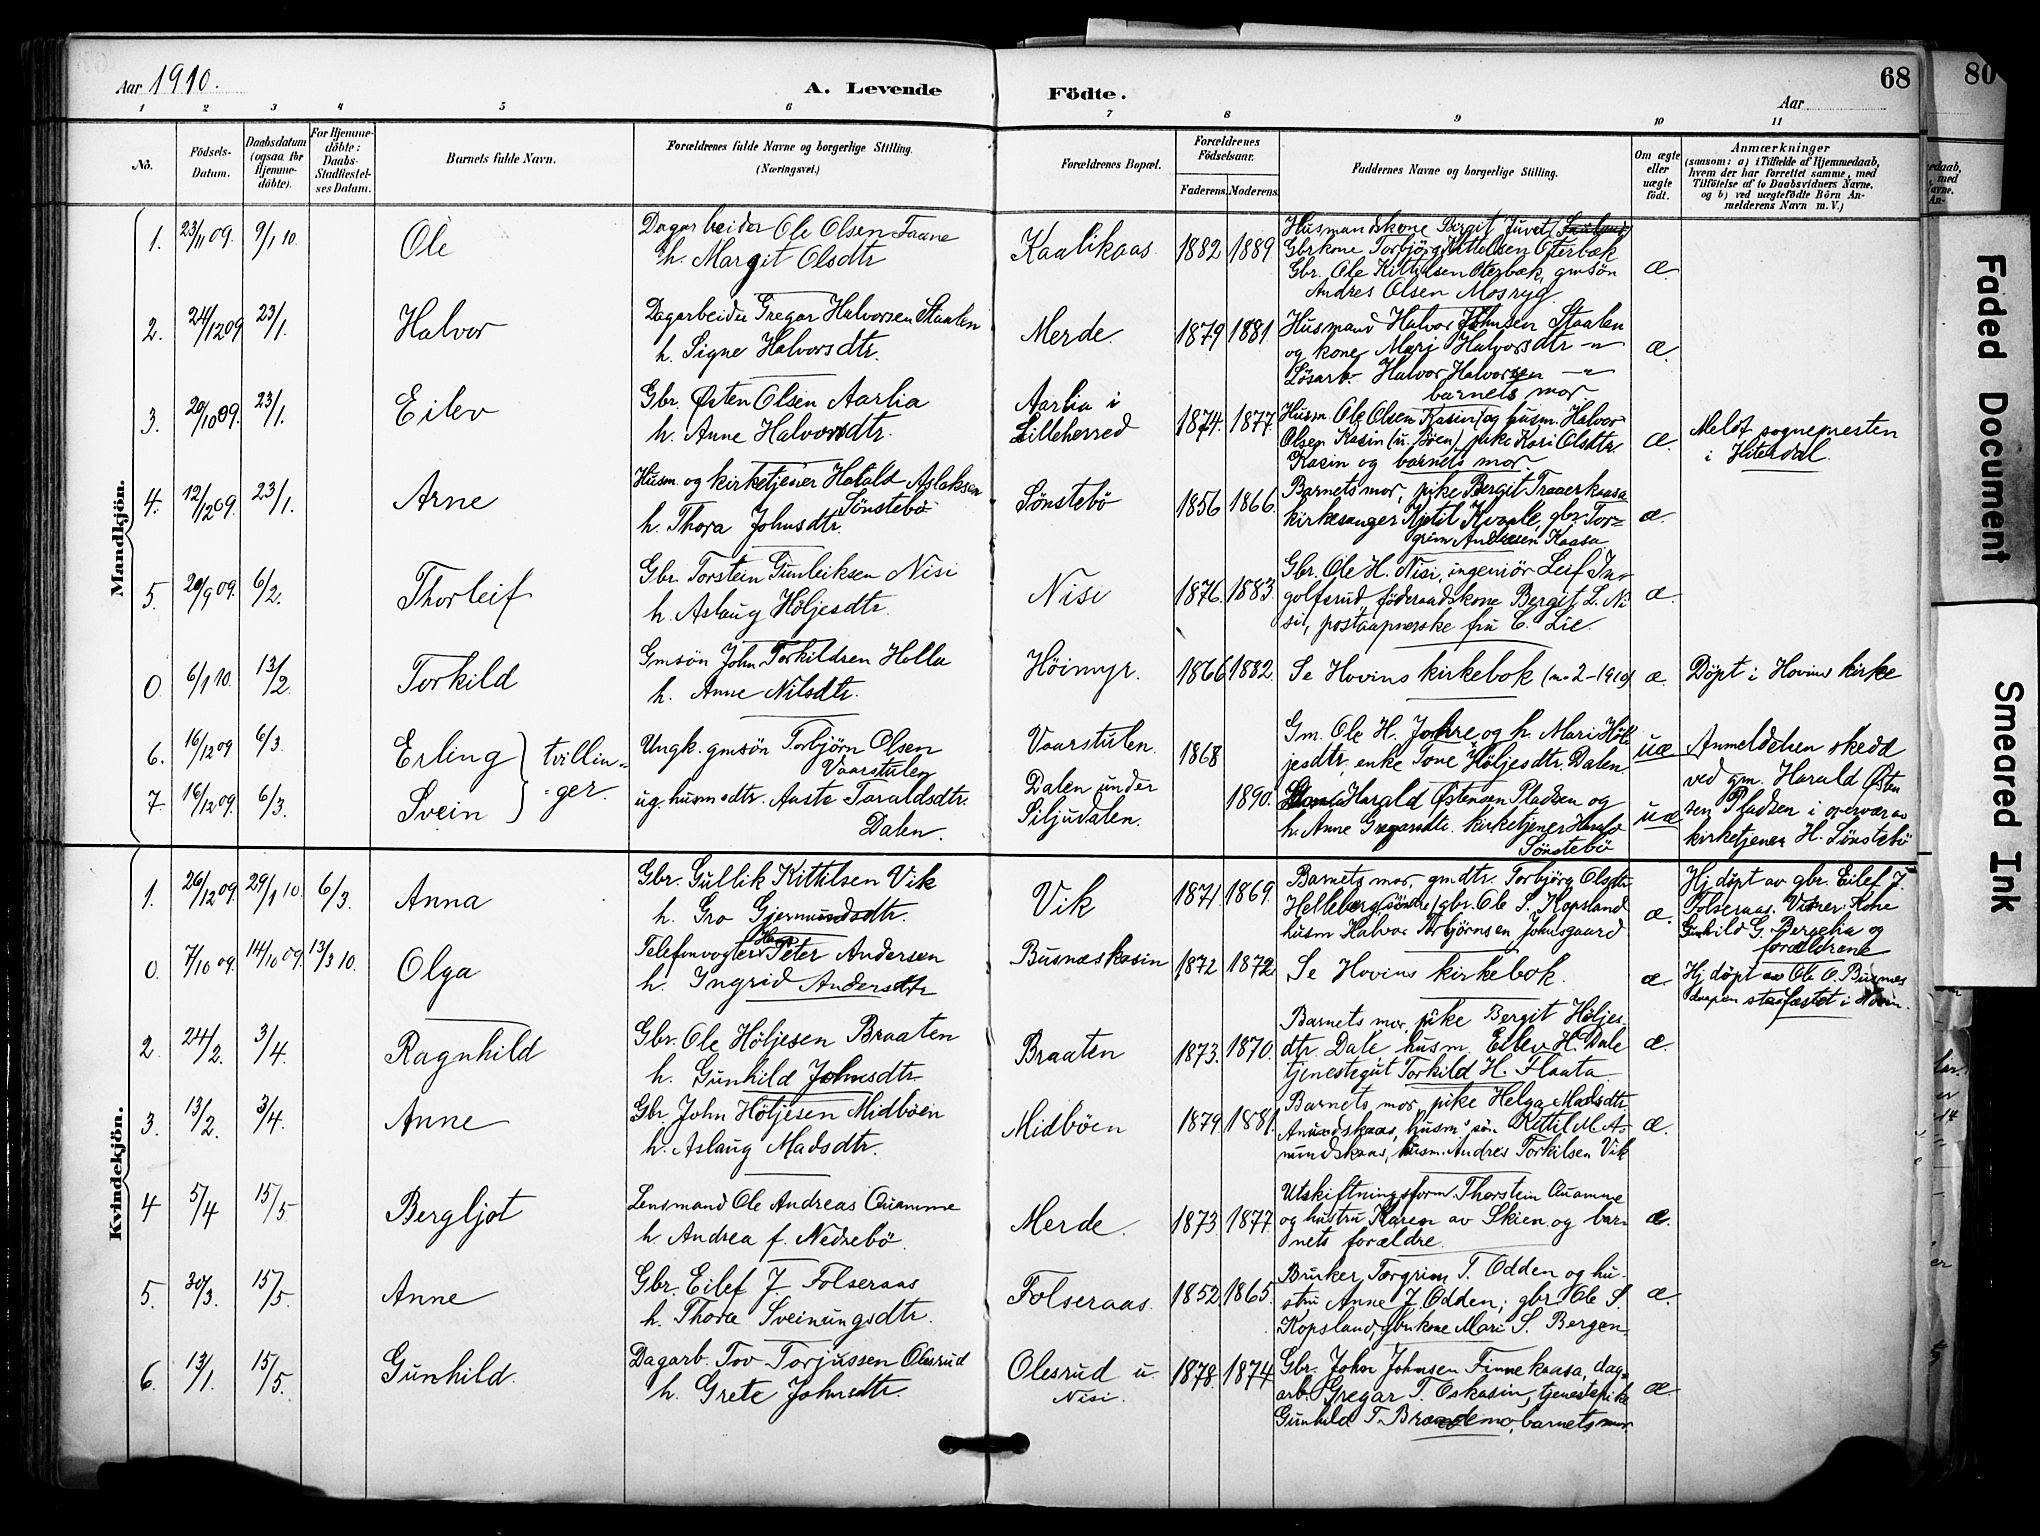 Aar 1910.
A. Levende Födte.
Aar
68
80
1 2 3 4 5 6 7 8 9 10 11
No.
Födsels-Datum.
Daabsdatum (ogsaa for Hjemme-döbte).
For Hjemme-döbte: Daabs-Stadfæstelses Datum.
Barnets fulde Navn.
Forældrenes fulde Navne og borgerlige Stilling. (Næringsvei.)
Forældrenes Bopæl.
Forældrenes Födselsaar.
Faderens. Moderens.
Faddernes Navne og borgerlige Stilling.
Om ægte eller uægte födt.
Anmærkninger
(saasom: a) i Tilfælde af Hjemmedaab,
hvem der har forrettet samme, med
Tilföielse af to Daabsvidners Navne,
og b) ved uægtefödte Börn An-
melderens Navn m. V.)
Mandkjön.
1. 23/11 09. 9/1 10. Ole
Dagarbeider Ole Olsen Faane
h. Margit Olsdtr
Kaalikaas 1882 1889
Husmandskone Birgit Juvet
Gbrkone Torbjörg Kittelsen Oterbæk
Gbr. Ole Kittilsen Oterbæk, gmsön
Andres Olsen Mosryg.
æ
2. 24/12 09 23/1. Halvor
Dagarbeider Gregar Halvorsen Staalen
h. Signe Halvorsdtr.
Merde. 1879 1881.
Husmand Halvor Johnsen Staalen
og kone Mari Halvorsdtr -"-
Løsarb. Halvor Halvorsen -"-
barnets mor
æ.
3. 20/10 09. 23/1. Eilev
Gbr. Østen Olsen Aarlia
h. Anne Halvorsdtr.
Aarlia i
Lilleherred
1874. 1877.
Husm. Ole Olsen Kasin og husm. Halvor
Olsen Kasin (u. Bøen), pike Kari Olsdtr.
Kasin og barnets mor.
æ.
Meldt sognepresten
i Hiterdal.
4. 12/12 09. 23/1. Arne
Husm. og kirketjener Harald Aslaksen
Sønstebö
h. Thora Johnsdtr.
Sønstebö 1856 1866.
Barnets mor, pike Bergit Traaerkaasa
kirkesanger Kjetil Kvaale, gbr. Tor-
grim Andresen Kaasa
æ.
5. 20/9 09. 6/2. Thorleif
Gbr. Torstein Gunleiksen Nisi
h. Aslaug Höljesdtr.
Nisi 1876. 1883.
Gbr. Ole H. Nisi, ingeniör Leif In-
golfsrud, föderaadskone Bergit L. Ni
si, postaapnerske fru C. Lie.
æ.
0. 6/1 10. 13/2. Torkild
Gmsön John Torkildsen Holla
h. Anne Nilsdtr.
Höimyr. 1866 1882.
Se Hovins kirkebok (no 2-1910) æ.
Döpt i Hovins kirke
6. 16/12 09 6/3. Erling
7. 16/12 09. 6/3. Svein
tvillin-
ger.
Ungk. gmsön Torbjörn Olsen
Vaarstulen
ug. husmsdtr. Aaste Taraldsdtr.
Dalen.
Vaarstulen.
Dalen under
Siljudalen.
1868
1890.
Gm. Ole H. Johre og h. Mari Höl-
jesdtr, enke Tone Höljesdtr. Dalen.
Harald Østensen Pladsen og
h. Anne Gregarsdtr. kirketjener Harald
Sønstebö
uæ
uæ
Anmeldelsen skedd
ved gm. Harald Østen
sen Pladsen i overvær av
kirketjener H. Sønstebö
Kvindekjön.
1. 26/12 09. 29/1 10. 6/3. Anna
Gbr. Gullik Kittilsen Vik
h. Gro Gjermundsdtr.
Vik 1871 1869.
Barnets mor, gmdtr. Torbjörg Olsdtr
Helleberg (söndre) gbr. Ole S. Kopsland
husm Halvor Torbjörnsen Johnsgaard
æ.
Hj. döpt av gbr. Eilef J.
Folseraas. Vitner: Kone
Gunhild G. Bergelia og
forældrene
0. 7/10 09. 14/10 09. 13/3 10. Olga
Telefonvogter Hans Peter Andersen
h. Ingrid Andersdtr
Busnæskasin 1872 1872
Se Hovins kirkebok. æ.
Hj. döpt av Ole O. Busnes
daapen stadfæstet i Hovin.
2. 24/2. 3/4. Ragnhild
Gbr. Ole Höljesen Braaten
h. Gunhild Johnsdtr.
Braaten 1873. 1870.
Barnets mor, pike Bergit Höljes-
dtr. Dale husm. Eilev H. Dale
tjenestegut Torkild H. Flaata
æ.
3. 13/2. 3/4. Anne
Gbr. John Höljesen Midböen
h. Aslaug Madsdtr.
Midböen 1879. 1881.
Barnets mor, pike Helga Madsdtr.
Amundskaas, husms sön Kittil M. A-
mundskaas, husm. Andres Torkilsen Vik
æ.
4 5/4 15/5 Bergljot
Lensmand Ole Andreas Quamme
h. Andrea f. Nedrebö.
Merde. 1873. 1877.
Utskiftningsform. Thorstein Quamme
og hustru Karen av Skien og bar-
nets forældre.
æ.
5. 30/3. 15/5. Anne
Gbr. Eilef J. Folseraas
h. Thora Sveinungsdtr.
Folseraas. 1852. 1865.
Bruker Torgrim T. Odden og hu-
stru Anne J. Odden; gbr. Ole S.
Kopsland, gbrkone Mari S. Bergen.
æ.
6. 13/1. 15/5. Gunhild.
Dagarb. Tov Torjussen Olesrud
h. Grete Johnsdtr.
Olesrud u.
Nisi.
1878. 1874.
Gbr. John Johnsen Finnekaasa, dag-
arb. Gregar T. Oskasin, tjenestepike
Gunhild T. Brandemo, barnets mor.
æ.
Faded Document
Smeared Ink